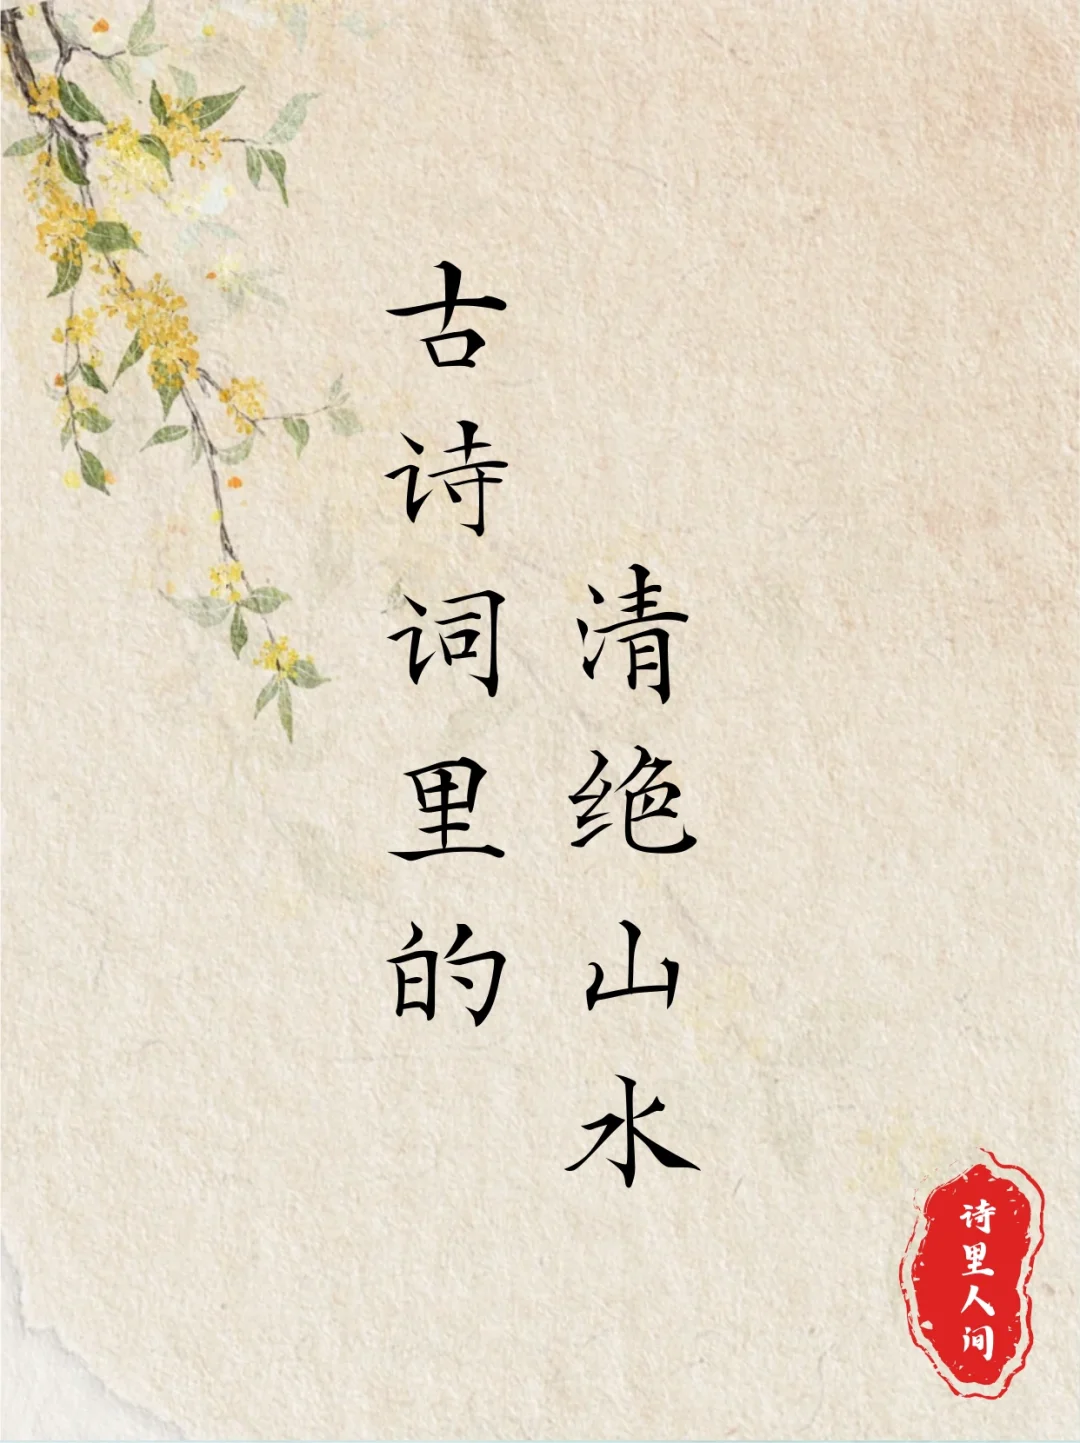 古诗词里的
清绝山水
诗里人间